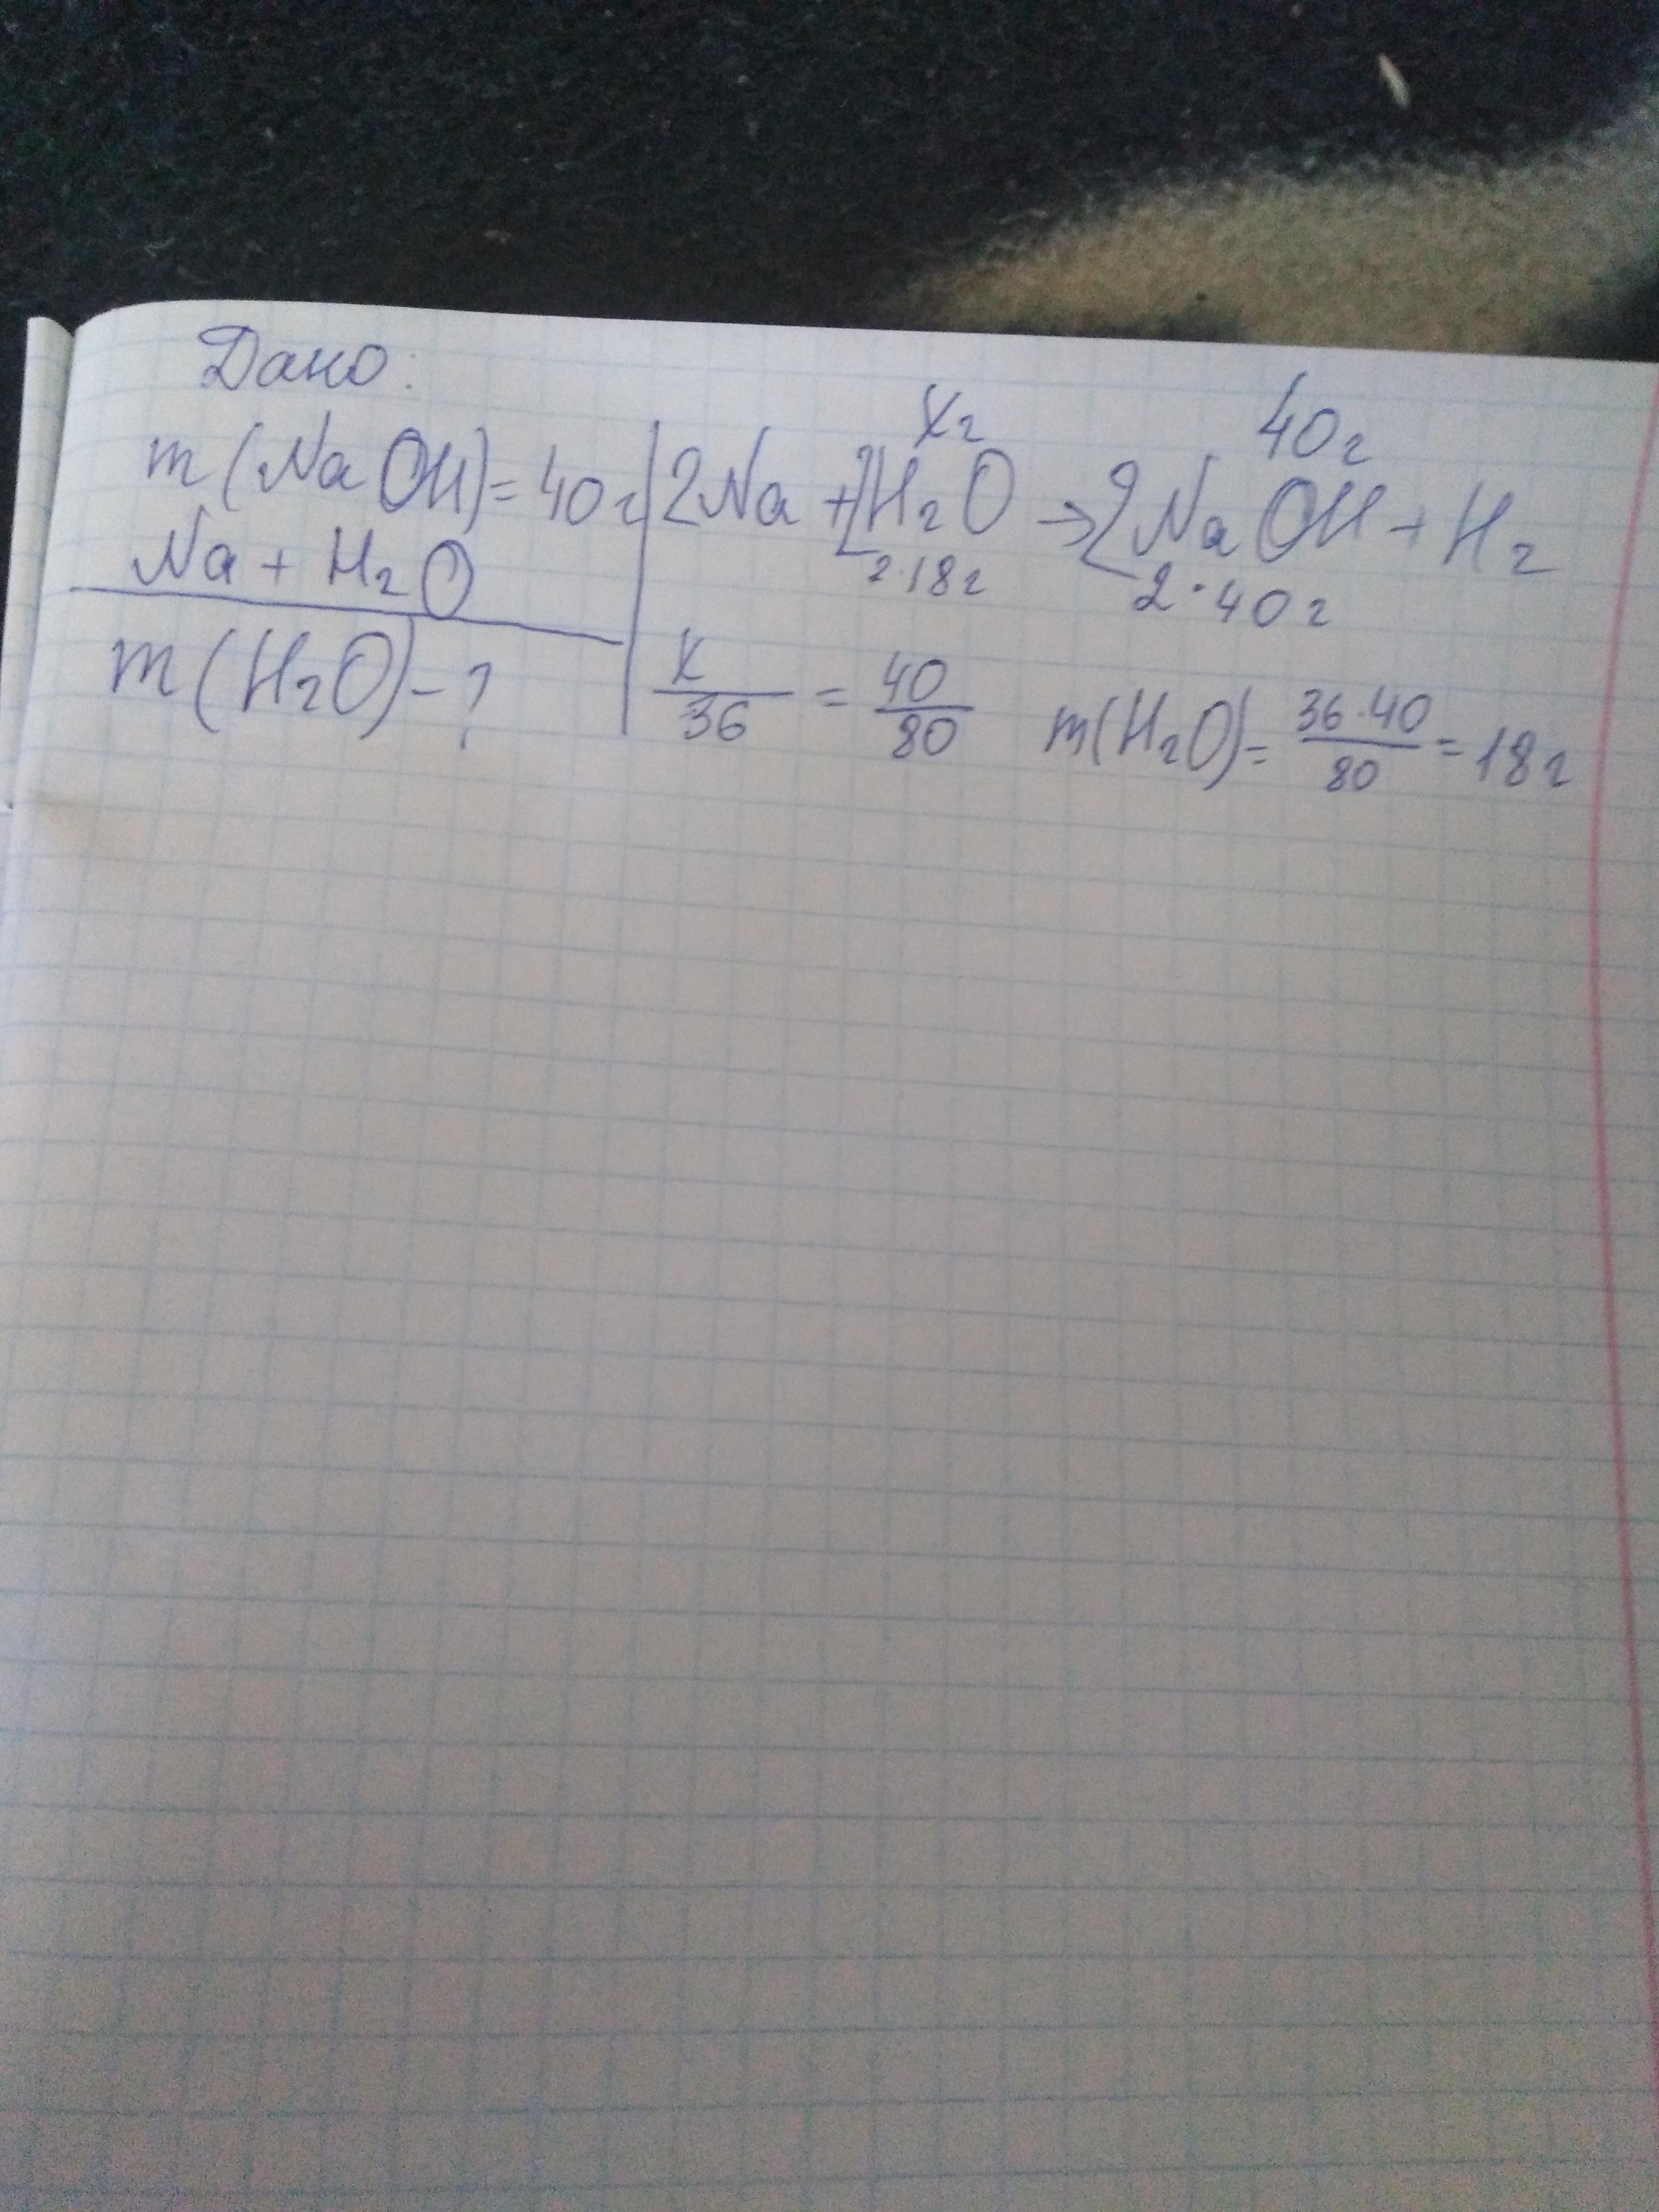 Дано:
m(NaOH)=40г
Na + H₂O
m(H₂O)-?
хг 40г
2Na + 2H₂O → 2NaOH + H₂
2·18г 2·40г
х/36 = 40/80 m(H₂O)= 36·40/80 = 18г